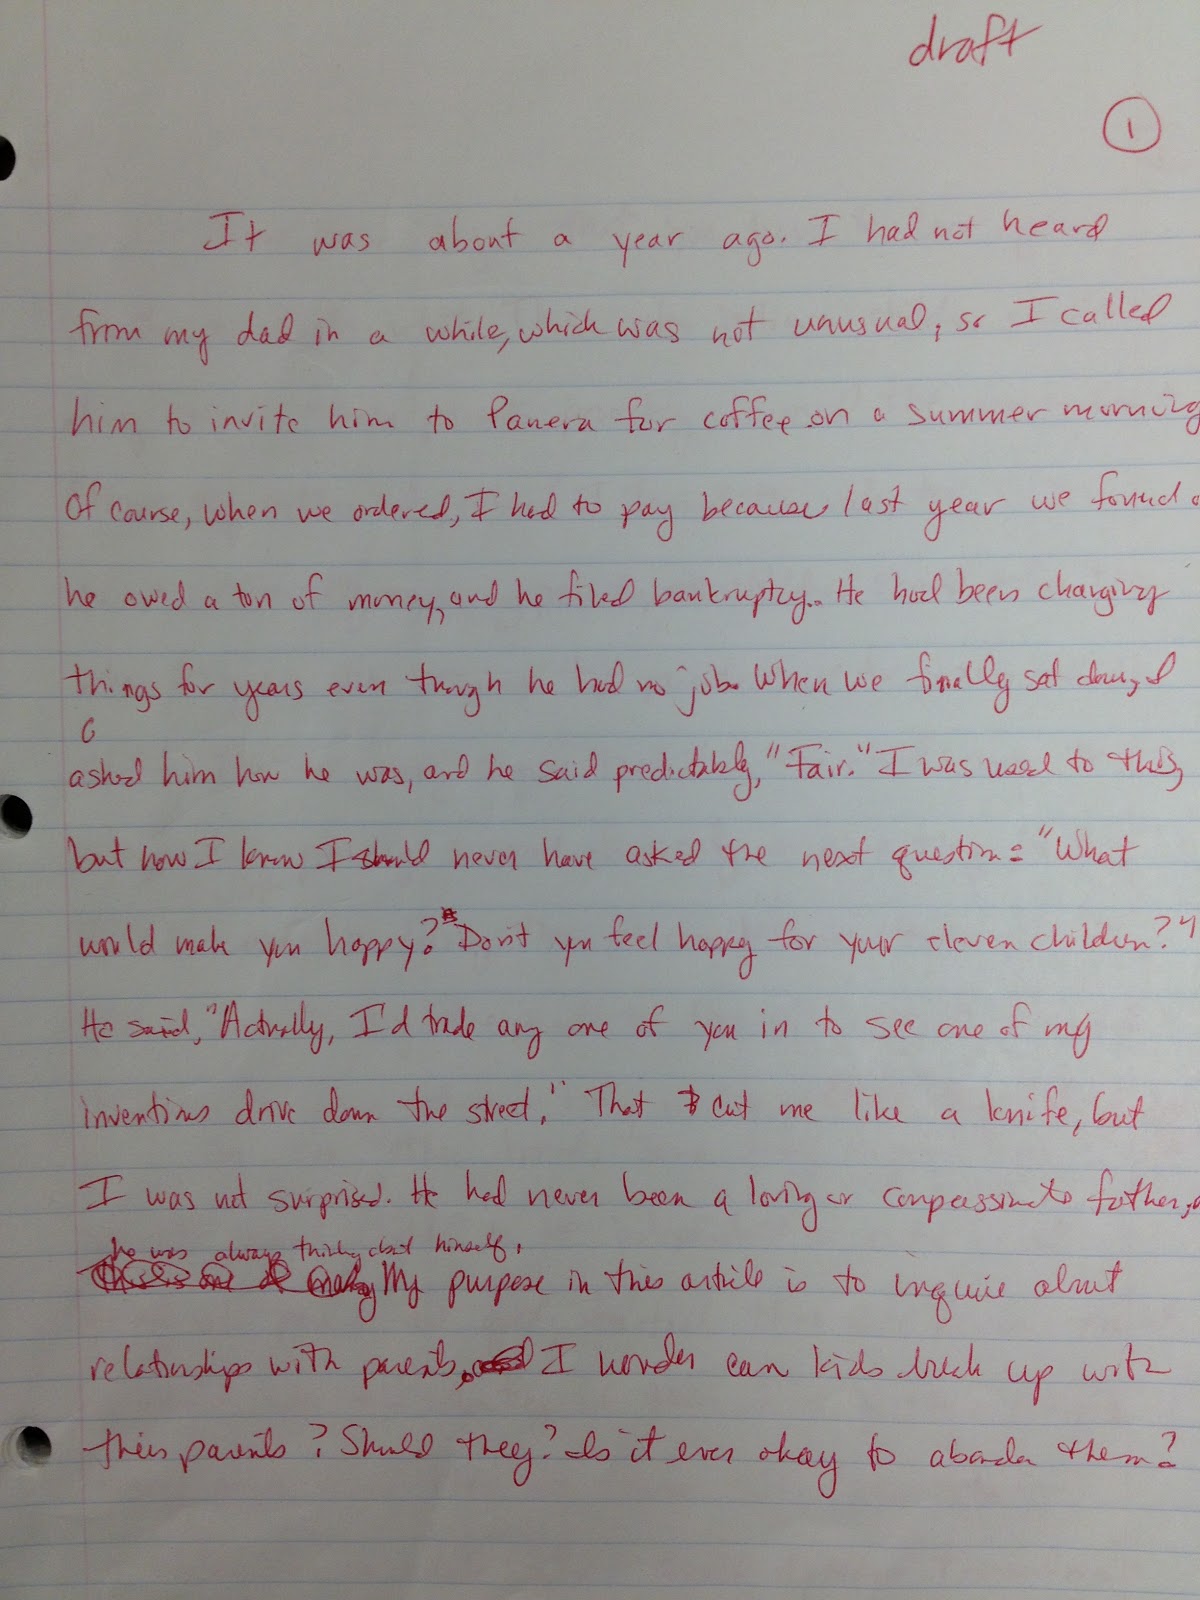 draft
1
It was about a year ago. I had not heard
from my dad in a while, which was not unusual, so I called
him to invite him to Panera for coffee on a summer morning
Of course, when we ordered, I had to pay because last year we found o
he owed a ton of money, and he filed bankruptcy. He had been charging
things for years even though he had no job. When we finally sat down, I
asked him how he was, and he said predictably, "Fair." I was used to this,
but now I know I should never have asked the next question: "What
would make you happy? Don't you feel happy for your eleven children?"
He said, "Actually, I'd trade any one of you in to see one of my
inventions drive down the street." That cut me like a knife, but
I was not surprised. He had never been a loving or compassionate father,
he was always thinking about himself.
My purpose in this article is to inquire about
relationships with parents. I wonder can kids break up with
their parents? Should they? Is it ever okay to abandon them?